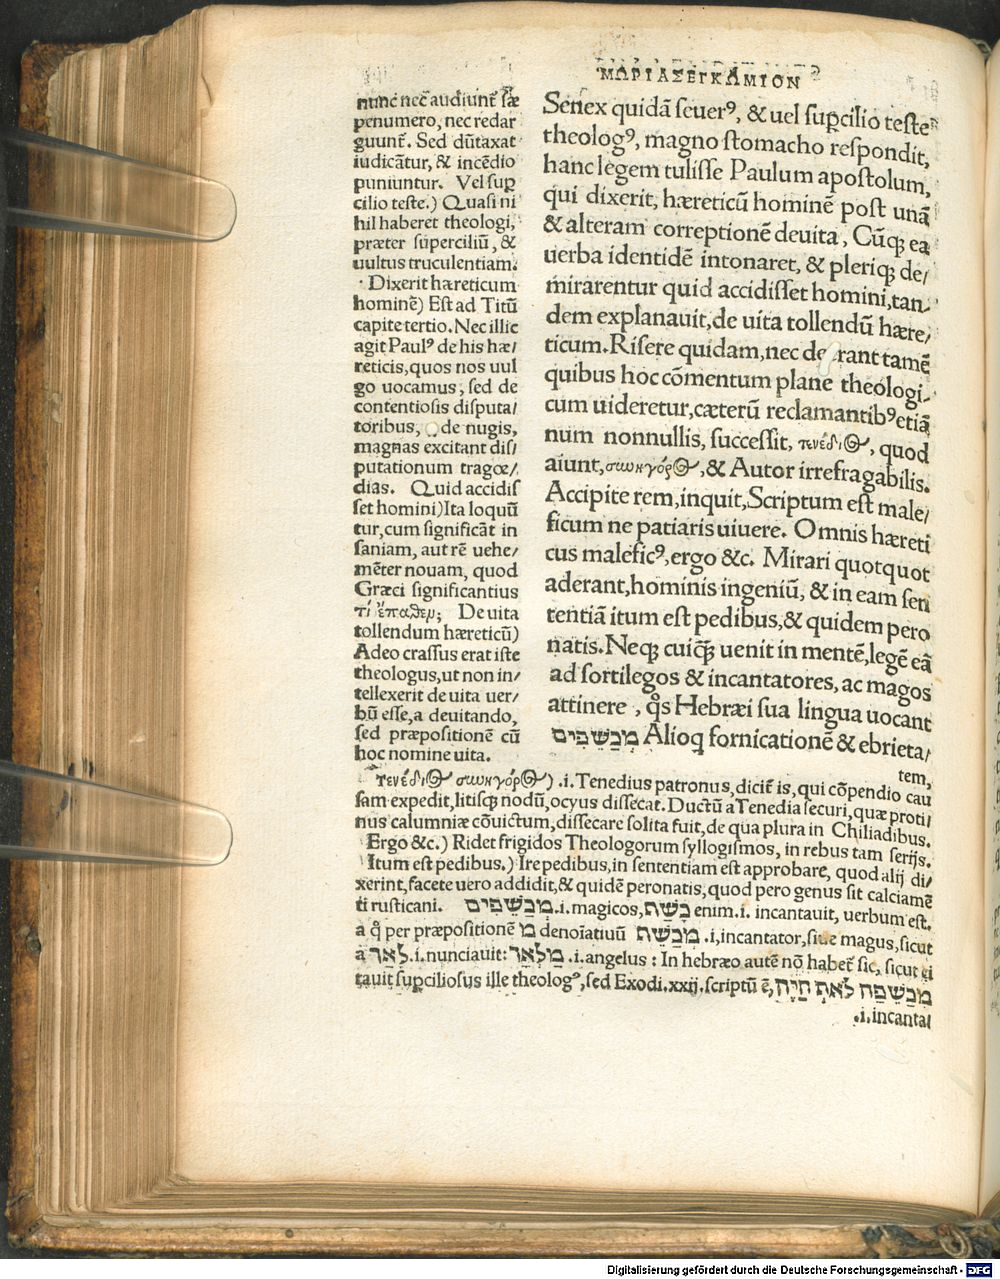 ΜΩΡΙΑΣ ΕΓΚΩΜΙΟΝ
nunc nec audiunt᷑ sæ
penumero, nec redar
guunt᷑. Sed dūtaxat
iudicātur, & incēdio
puniuntur. Vel sup
cilio teste.) Quasi ni
hil haberet theologi,
præter superciliū, &
uultus truculentiam.
Dixerit hæreticum
hominē) Est ad Titū
capite tertio. Nec illic
agit Paulꝰ de his hæ/
reticis, quos nos uul
go uocamus, sed de
contentiosis disputa/
toribus, de nugis,
magnas excitant dis/
putationum tragœ/
dias. Quid accidis
set homini) Ita loquū
tur, cum significāt in
saniam, aut rē uehe/
mēter nouam, quod
Græci significantius
τί ἔπαθεν; De uita
tollendum hæreticū)
Adeo crassus erat iste
theologus, ut non in/
tellexerit de uita uer/
bū esse, a deuitando,
sed præpositionē cū
hoc nomine uita.
Senex quidā seuerꝰ, & uel sup̱cilio teste
theologꝰ, magno stomacho respondit,
hanc legem tulisse Paulum apostolum,
qui dixerit, hæreticū hominē post unā
& alteram correptionē deuita, Cūq; ea
uerba identidē intonaret, & pleriq; de/
mirarentur quid accidisset homini, tan.
dem explanauit, de uita tollendū hære/
ticum. Risere quidam, nec deerant tamē
quibus hoc cōmentum plane theologi.
cum uideretur, cæterū reclamantibꝰ etiā
num nonnullis, successit, τενέδιος, quod
aiunt, συνήγορος, & Autor irrefragabilis.
Accipite rem, inquit, Scriptum est male/
ficum ne patiaris uiuere. Omnis hæreti
cus maleficꝰ, ergo &c. Mirari quotquot
aderant, hominis ingeniū, & in eam sen
tentiā itum est pedibus, & quidem pero
natis. Neq; cuiq̄ȝ uenit in mentē, legē eā
ad sortilegos & incantatores, ac magos
attinere, q̊s Hebræi sua lingua uocant
מְכַשְׁפִים Alioq fornicationē & ebrieta/
tem,
τενέδιος συνήγορος) .i. Tenedius patronus, dicit᷑ is, qui cōpendio cau
sam expedit, litisq; nodū, ocyus dissecat. Ductū a Tenedia securi, quæ proti/
nus calumniæ cōuictum, dissecare solita fuit, de qua plura in Chiliadibus.
Ergo &c.) Ridet frigidos Theologorum syllogismos, in rebus tam serijs.
Itum est pedibus.) Ire pedibus, in sententiam est approbare, quod alij di/
xerint, facete uero addidit, & quidē peronatis, quod pero genus sit calciamē
ti rusticani. מְכַשְׁפִים .i. magicos, כָּשַׁת enim .i. incantauit, uerbum est.
a q̊ per præpositionē מ denoīatiuū מְכַשֵׁת .i, incantator, siue magus, sicut
a לאַך .i. nunciauit: מַלְאָך .i. angelus: In hebræo autē nō habet᷑ sic, sicut ci
tauit sup̱ciliosus ille theologꝰ, sed Exodi. xxij. scriptū ē, מְכַשֵׁפַה לֹאתְ חַיֶה
.i. incanta/